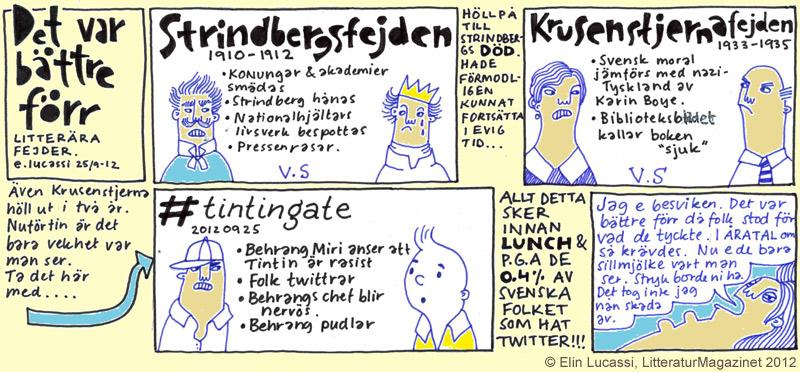 Det var
bättre
förr
LITTERÄRA
FEJDER.
e.lucassi 25/9-12
Strindbergsfejden
1910-1912
• KONUNGAR & akademier
smädas
• Strindberg hånas
• Nationalhjältars
livsverk bespottas
• Pressen rasar.
V.S
HÖLL PÅ
TILL
STRINDBER-
GS DÖD.
HADE
FÖRMODL-
IGEN
KUNNAT
FORTSÄTTA
I EVIG
TID...
Krusenstjernafejden
1933-1935
• Svensk moral
jämförs med nazi-
Tyskland av
Karin Boye.
• Biblioteksbladet
kallar boken
"sjuk"
V.S
Även Krusenstjerna
höll ut i två år.
Nuförtin är det
bara vekhet var
man ser.
Ta det här
med....
#tintingate
20120925
• Behrang Miri anser att
Tintin är rasist
• Folk twittrar
• Behrangs chef blir
nervös.
• Behrang pudlar
ALLT DETTA
SKER
INNAN
LUNCH &
P.G.A DE
0.4% AV
SVENSKA
FOLKET
SOM HAT
TWITTER!!!
Jag e besviken. Det var
bättre förr då folk stod för
vad de tyckte. I ÅRATAL om
så krävdes. Nu e de bara
sillmjölke vart man
ser. Stryk borde ni ha.
Det tog inte jag
nån skada
av.
© Elin Lucassi, LitteraturMagazinet 2012